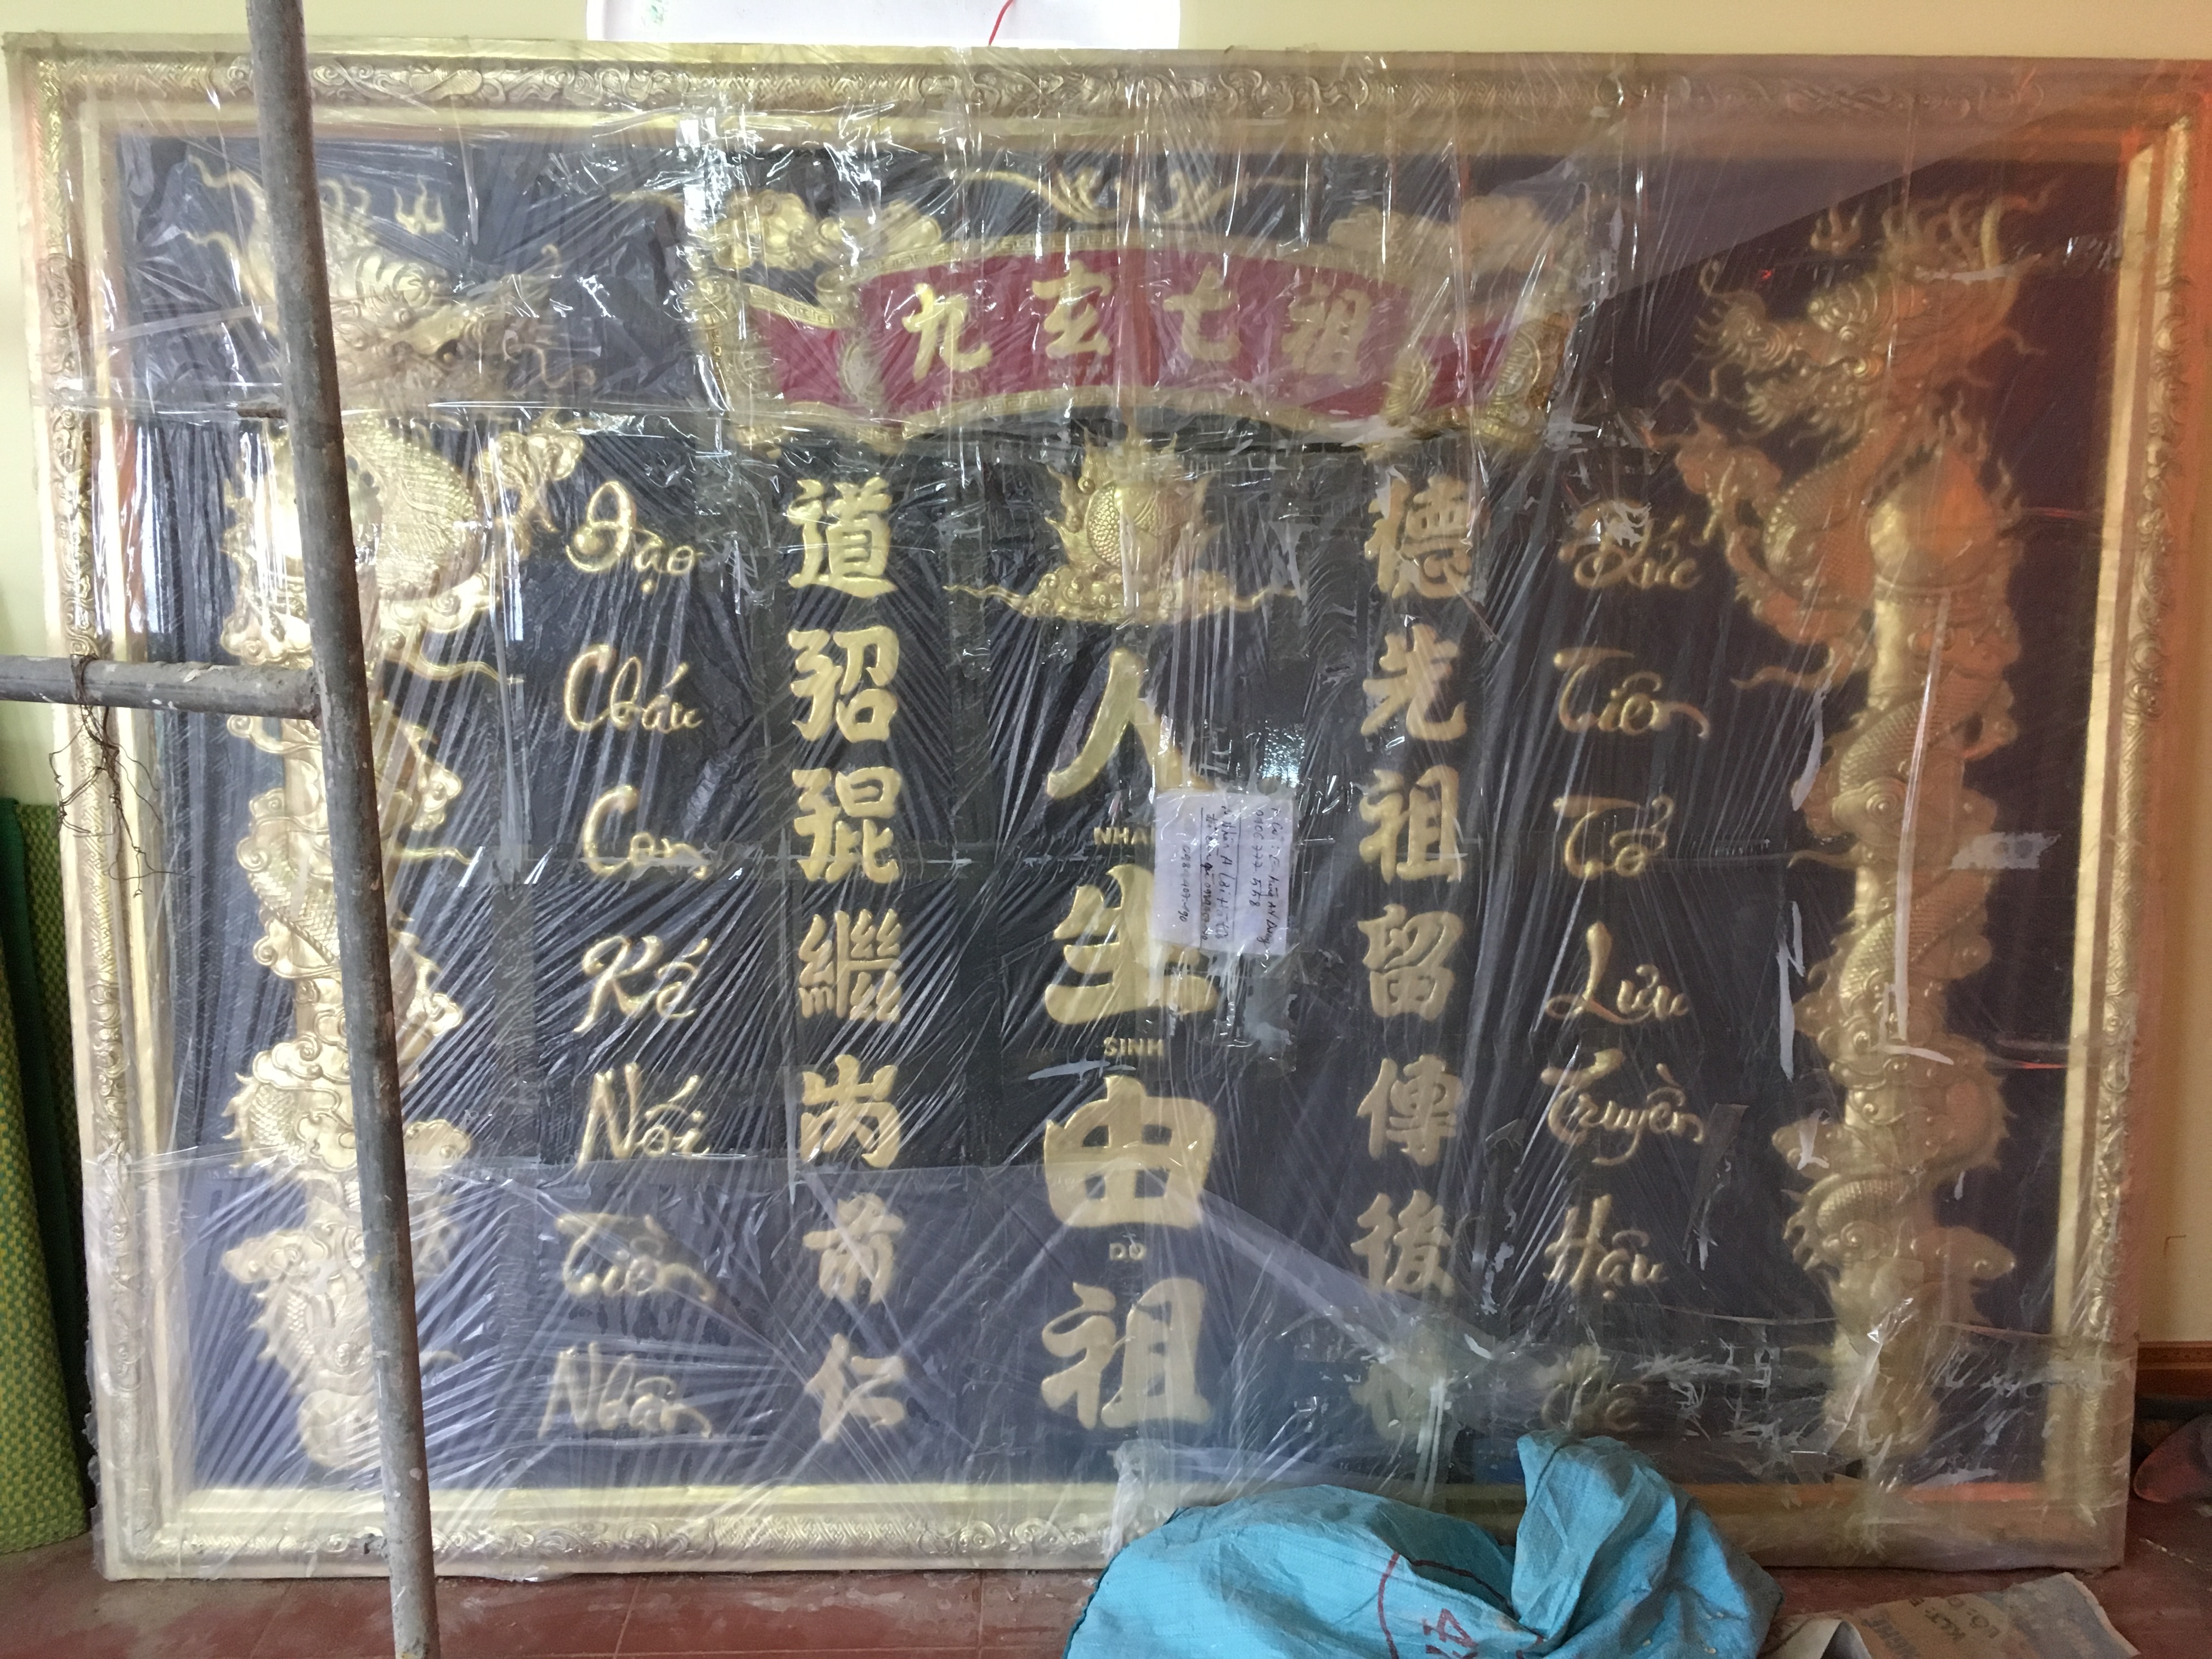 九玄七祖
Đạo
Cháu
Con
Kế
Nối
Tiền
Nhân
道𡥙𡥵繼尚前仁
人
NHÂ
生
SINH
由
DO
祖
德先祖留傳後
Đức
Tiên
Tổ
Lưu
Truyền
Hậu